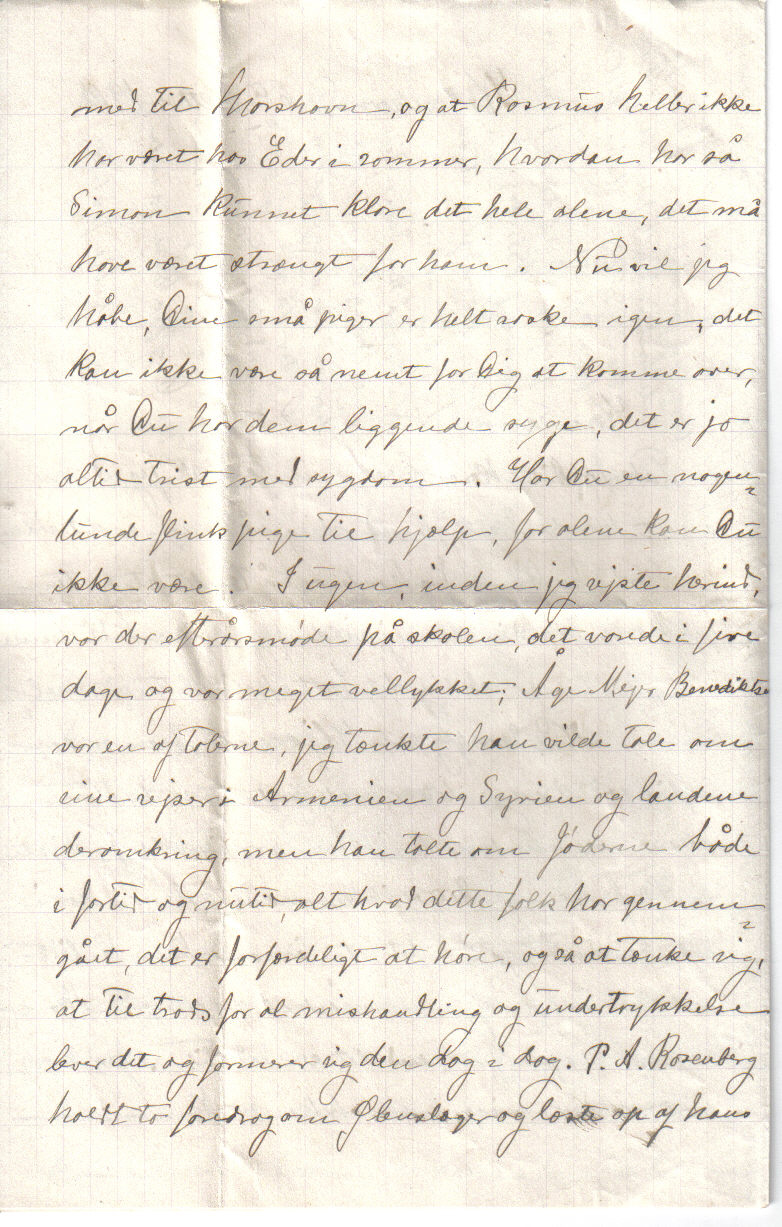 med til Thorshavn, og at Rasmus heller ikke
har været hos Eder i sommer, hvordan har så
Simon kunnet klare det hele alene, det må
have været strængt for ham. Nu vil jeg
håbe, Dine små piger er helt raske igen, det
kan ikke være så nemt for Dig at komme over,
når Du har dem liggende syge, det er jo
altid trist med sygdom. Har Du en nogen=
lunde flink pige til hjælp, for alene kan Du
ikke være. I ugen, inden jeg rejste herind,
var der efterårsmøde på skolen, det varede i fire
dage og var meget vellykket; Åge Mejer Benediktse
var en af talerne, jeg tænkte han vilde tale om
sine rejser i Armenien og Syrien og landene
deromkring, men han talte om Jøderne både
i fortid og nutid, alt hvad dette folk har gennem=
gået, det er forfærdeligt at høre, og så at tænke sig,
at til trods for al mishandling og undertrykkelse
lever det og formerer sig den Dag i Dag. P. A. Rosenberg
holdt to foredrag om Øhlenslæger og læste op af hans